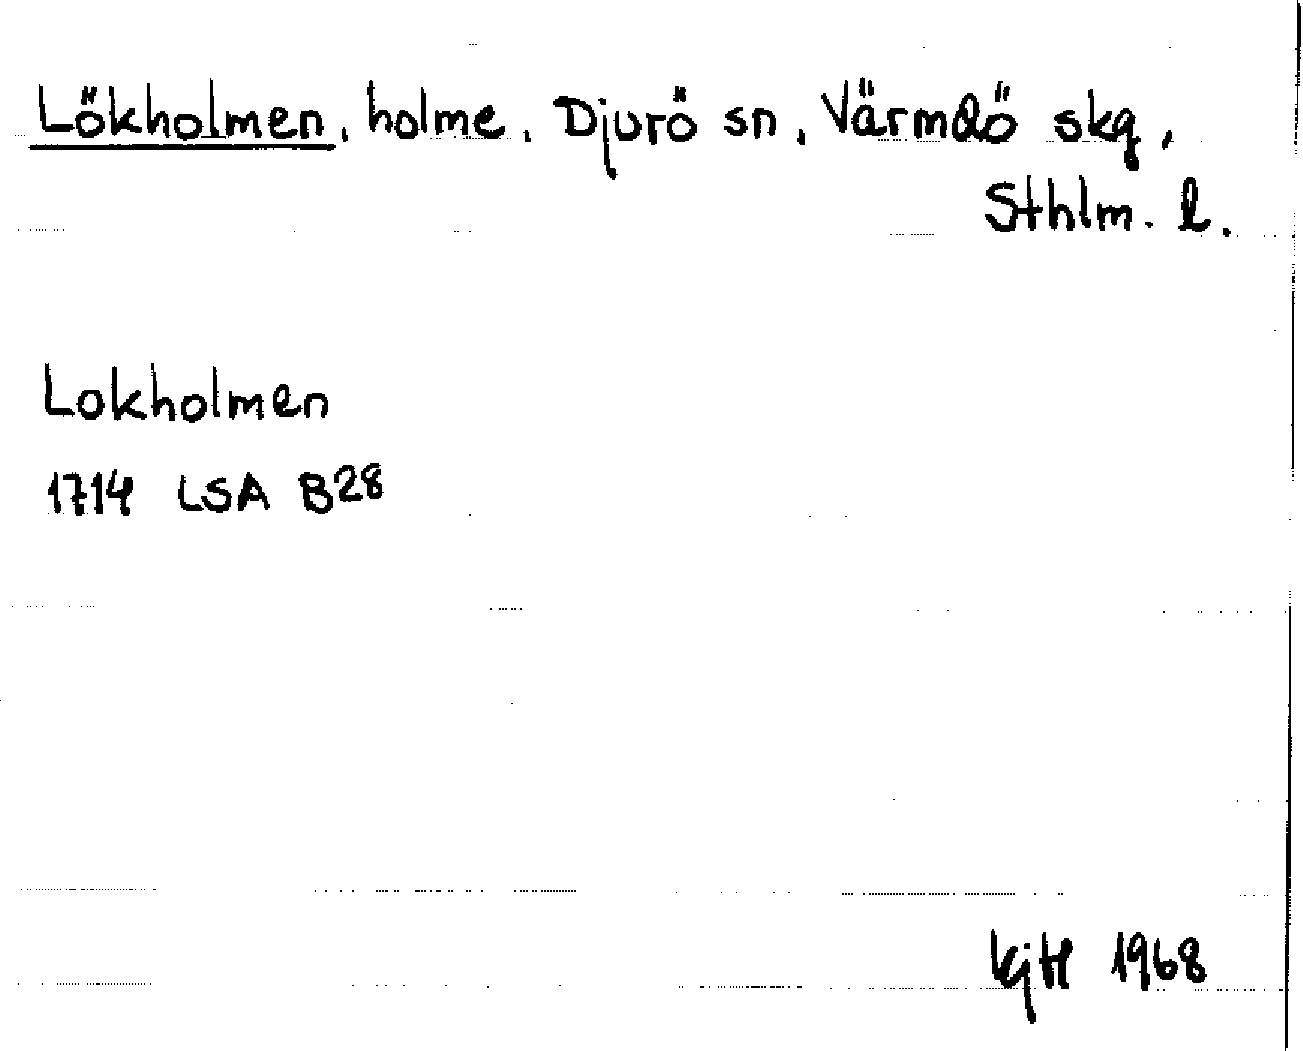 Lökholmen, holme, Djurö sn, Värmdö skg,
Sthlm. l.
Lokholmen
1714 LSA B28
KjH 1968